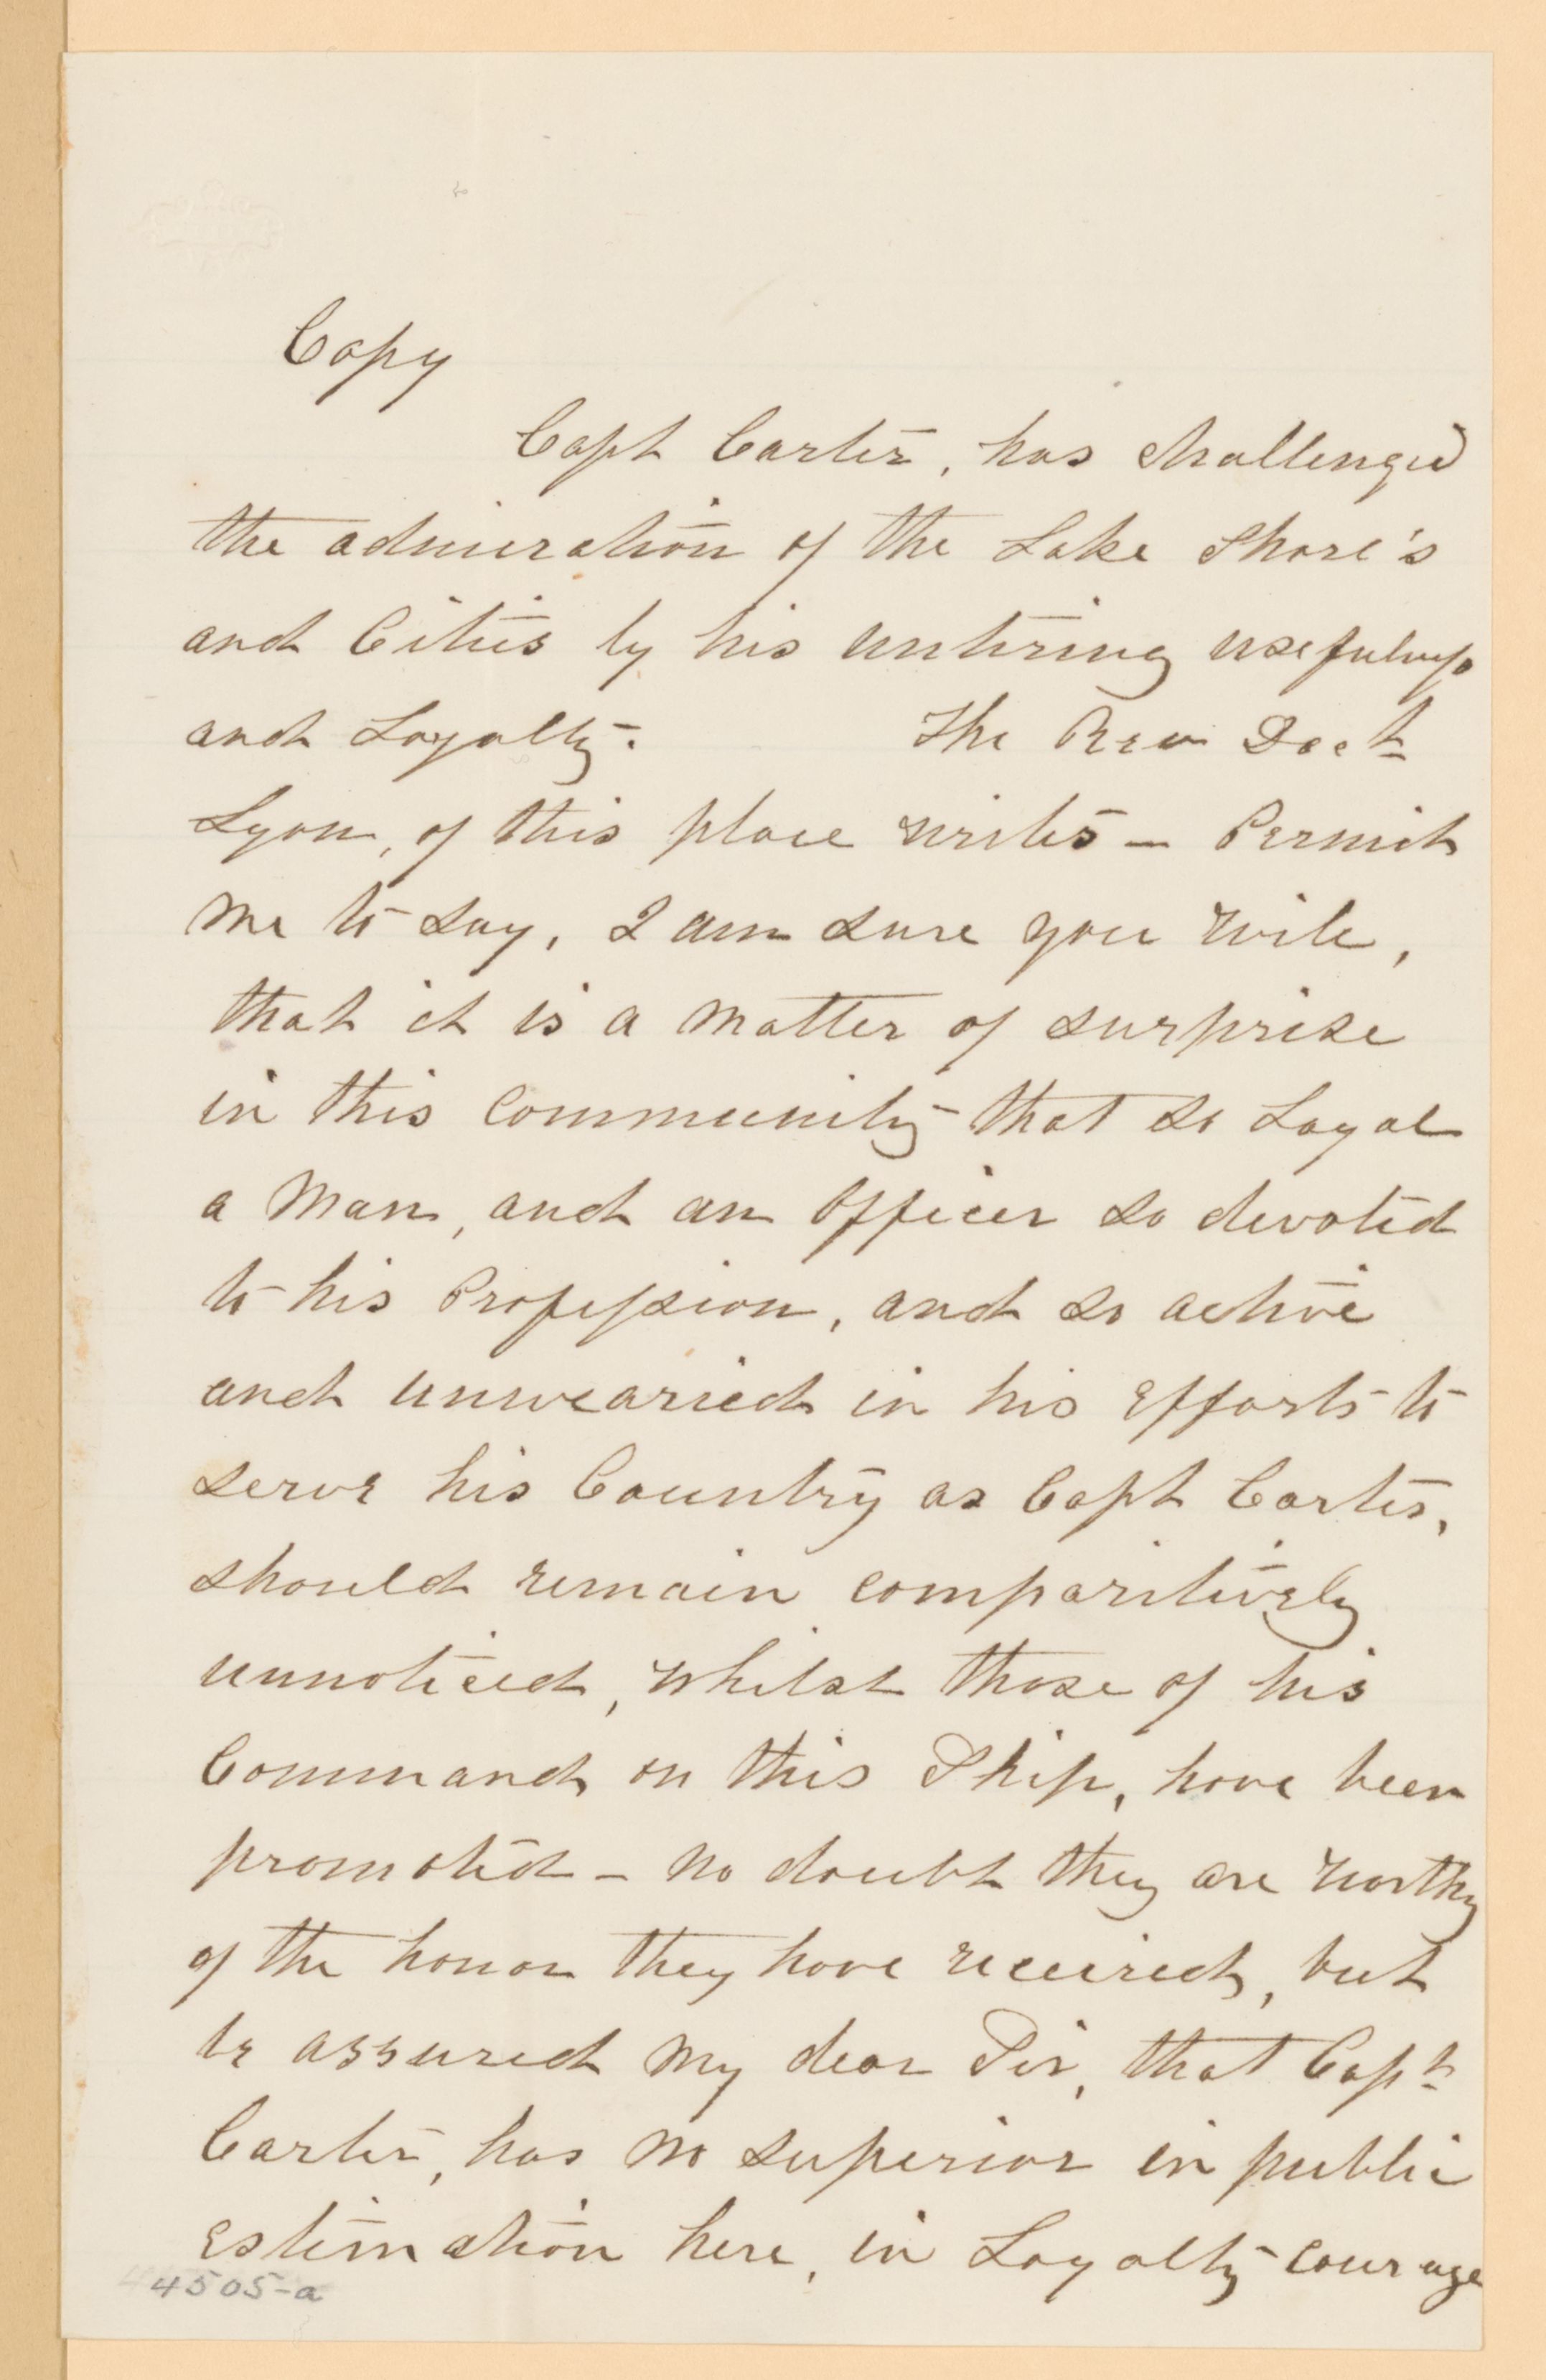 Copy
Capt Carter, has challenged
the admiration of the Lake Shore's
and Cities by his untiring usefulness
and Loyalty. The Rev Doct
Lyon, of this place writes — Permit
me to say, I am sure you will,
that it is a matter of surprise
in this community that so Loyal
a Man, and an Officer so devoted
to his Profession, and so active
and unwearied in his efforts to
serve his Country as Capt Carter,
should remain comparitively
unnoticed, whilst those of his
Command on this Ship, have been
promoted — no doubt they are worthy
of the honor they have received, but
be assured my dear Sir, that Capt
Carter, has no superior in public
estimation here, in Loyalty courage
4505-a